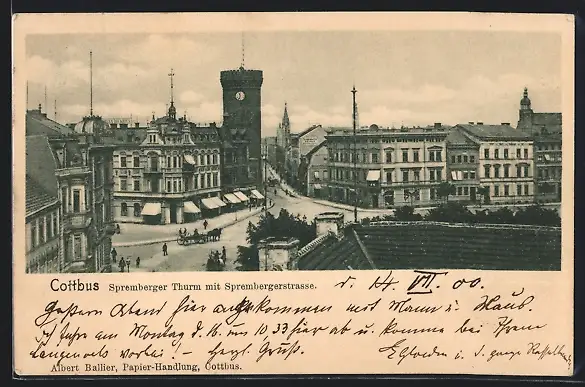 Cottbus Spremberger Thurm mit Sprembergerstrasse.
d. 14. VII. 00.
Gestern Abend hier angekommen mit Mann u. Haus,
fahre am Montag d. 16 um 10 33 hier ab u. komme bei Ihnen
vorbei! – Herzl. Gruß.
Albert Ballier, Papier-Handlung, Cottbus.